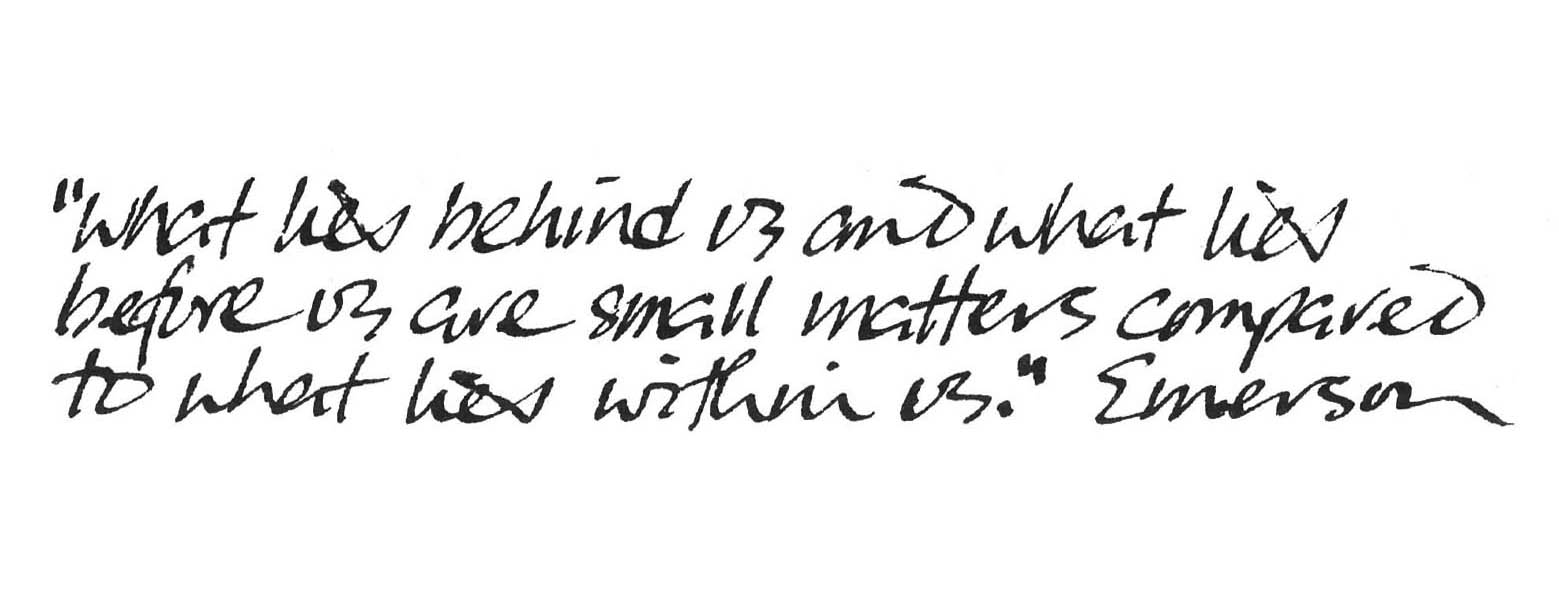 "What lies behind us and what lies
before us are small matters compared
to what lies within us." Emerson